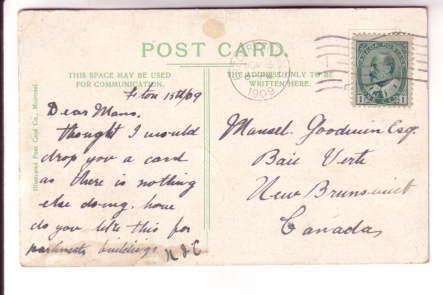 POST CARD.
THIS SPACE MAY BE USED
FOR COMMUNICATION.
THE ADDRESS ONLY TO BE
WRITTEN HERE.
1909
15th/09
Dear Mans.
thought I would
drop you a card
as there is nothing
else doing. how
do you like this for
buildings
Mansel. Goodwin Esq.
Baie Verte
New Brunswick
Canada,
Illustrated Post Card Co., Montreal